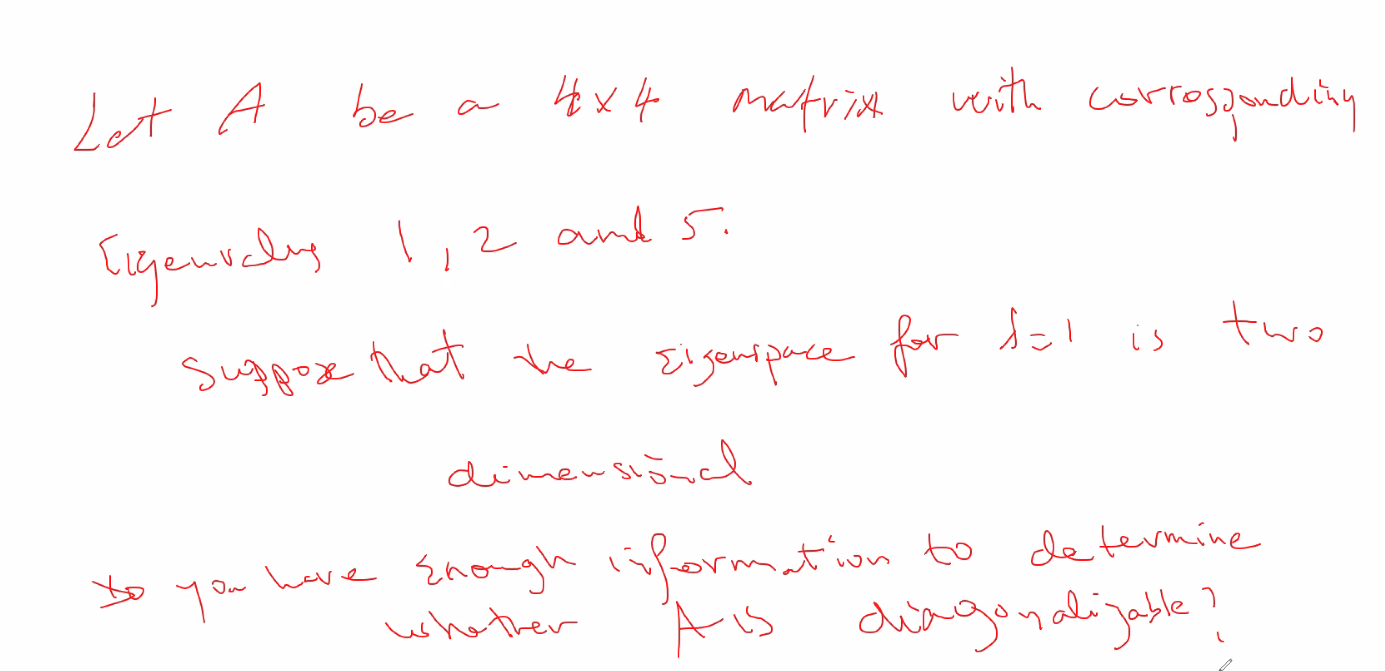 Let A be a 4x4 matrix with corresponding
Eigenvalues 1, 2 and 5.
Suppose that the Eigenspace for λ=1 is two
dimensional
Do you have Enough information to determine
whether A is diagonalizable?